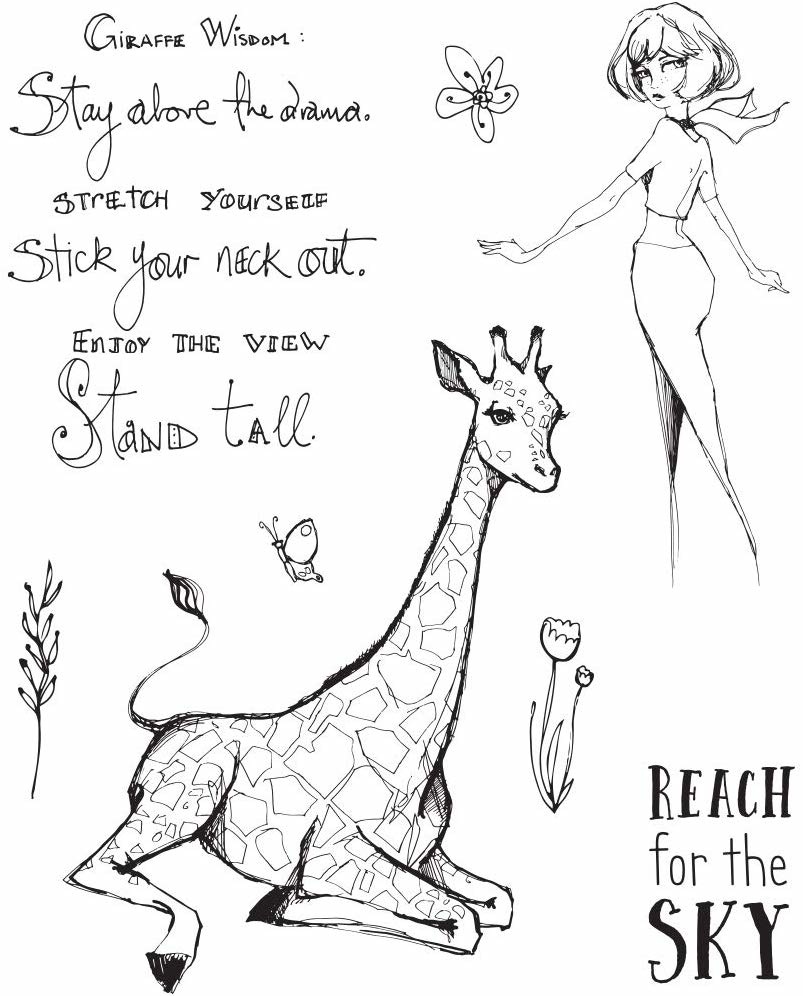 GIRAFFE WISDOM:
Stay above the drama.
STrETCH YOURSELF
Stick your nECK out.
EnJOY THE VIEW
StanD tall.
REACH
for the
SKY